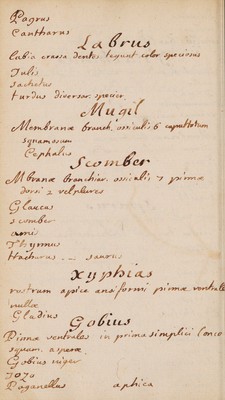 Pagrus
Cantharus
Labrus
labia crassa dentes tegunt color speciosus
Julis
sachettus
turdus diversar. specier
Mugil
Membranæ branch. ossiculis 6 caput totum
squamosum
Cephalus
Scomber
Mbranæ branchiar. ossiculis 7 pinnæ
dorsi 2 vel plures
Glaucus
scomber
Thynnus
trachurus - - saurus
Xyphias
rostrum apice ensiformi pinnæ ventrales
nullæ
Gladius
Gobius
Pinnæ ventrales in pinna simplici Conco
squam. asperæ
Gobius niger
Jozo
Paganellus aphica